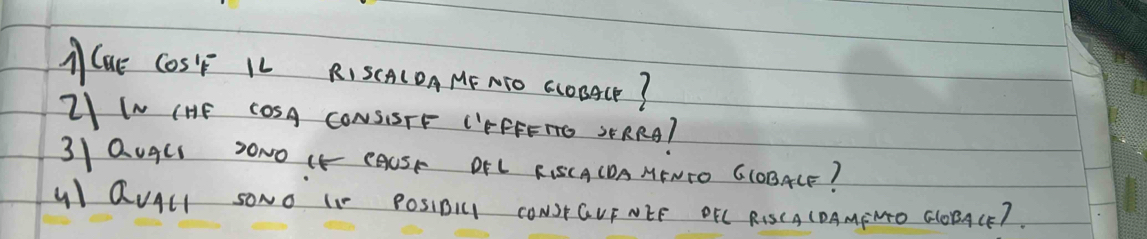 1) CHE COS'E IL RISCALDAMENTO GLOBALE?
2) IN CHE COSA CONSISTE L'EFFETTO SERRA?
3) QUALI SONO LE CAUSE DEL RISCALDAMENTO GLOBALE?
4) QUALI SONO LE POSIBILI CONSEGUENZE DEL RISCALDAMENTO GLOBALE?.